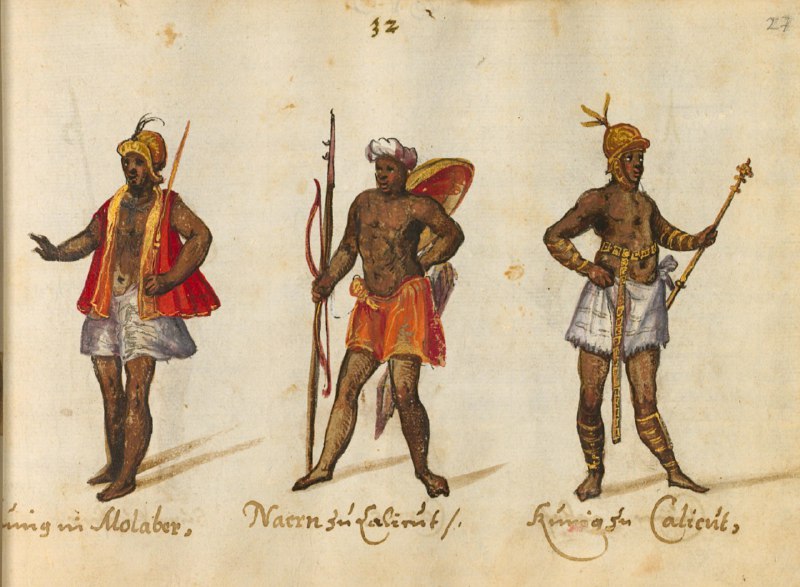 32
27
in Molaber,
Naern zu Calicut /.
Künig zu Calicut,